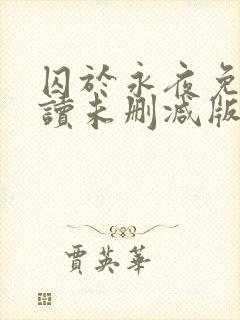 囚於永夜免
讀未刪減版
賈英華